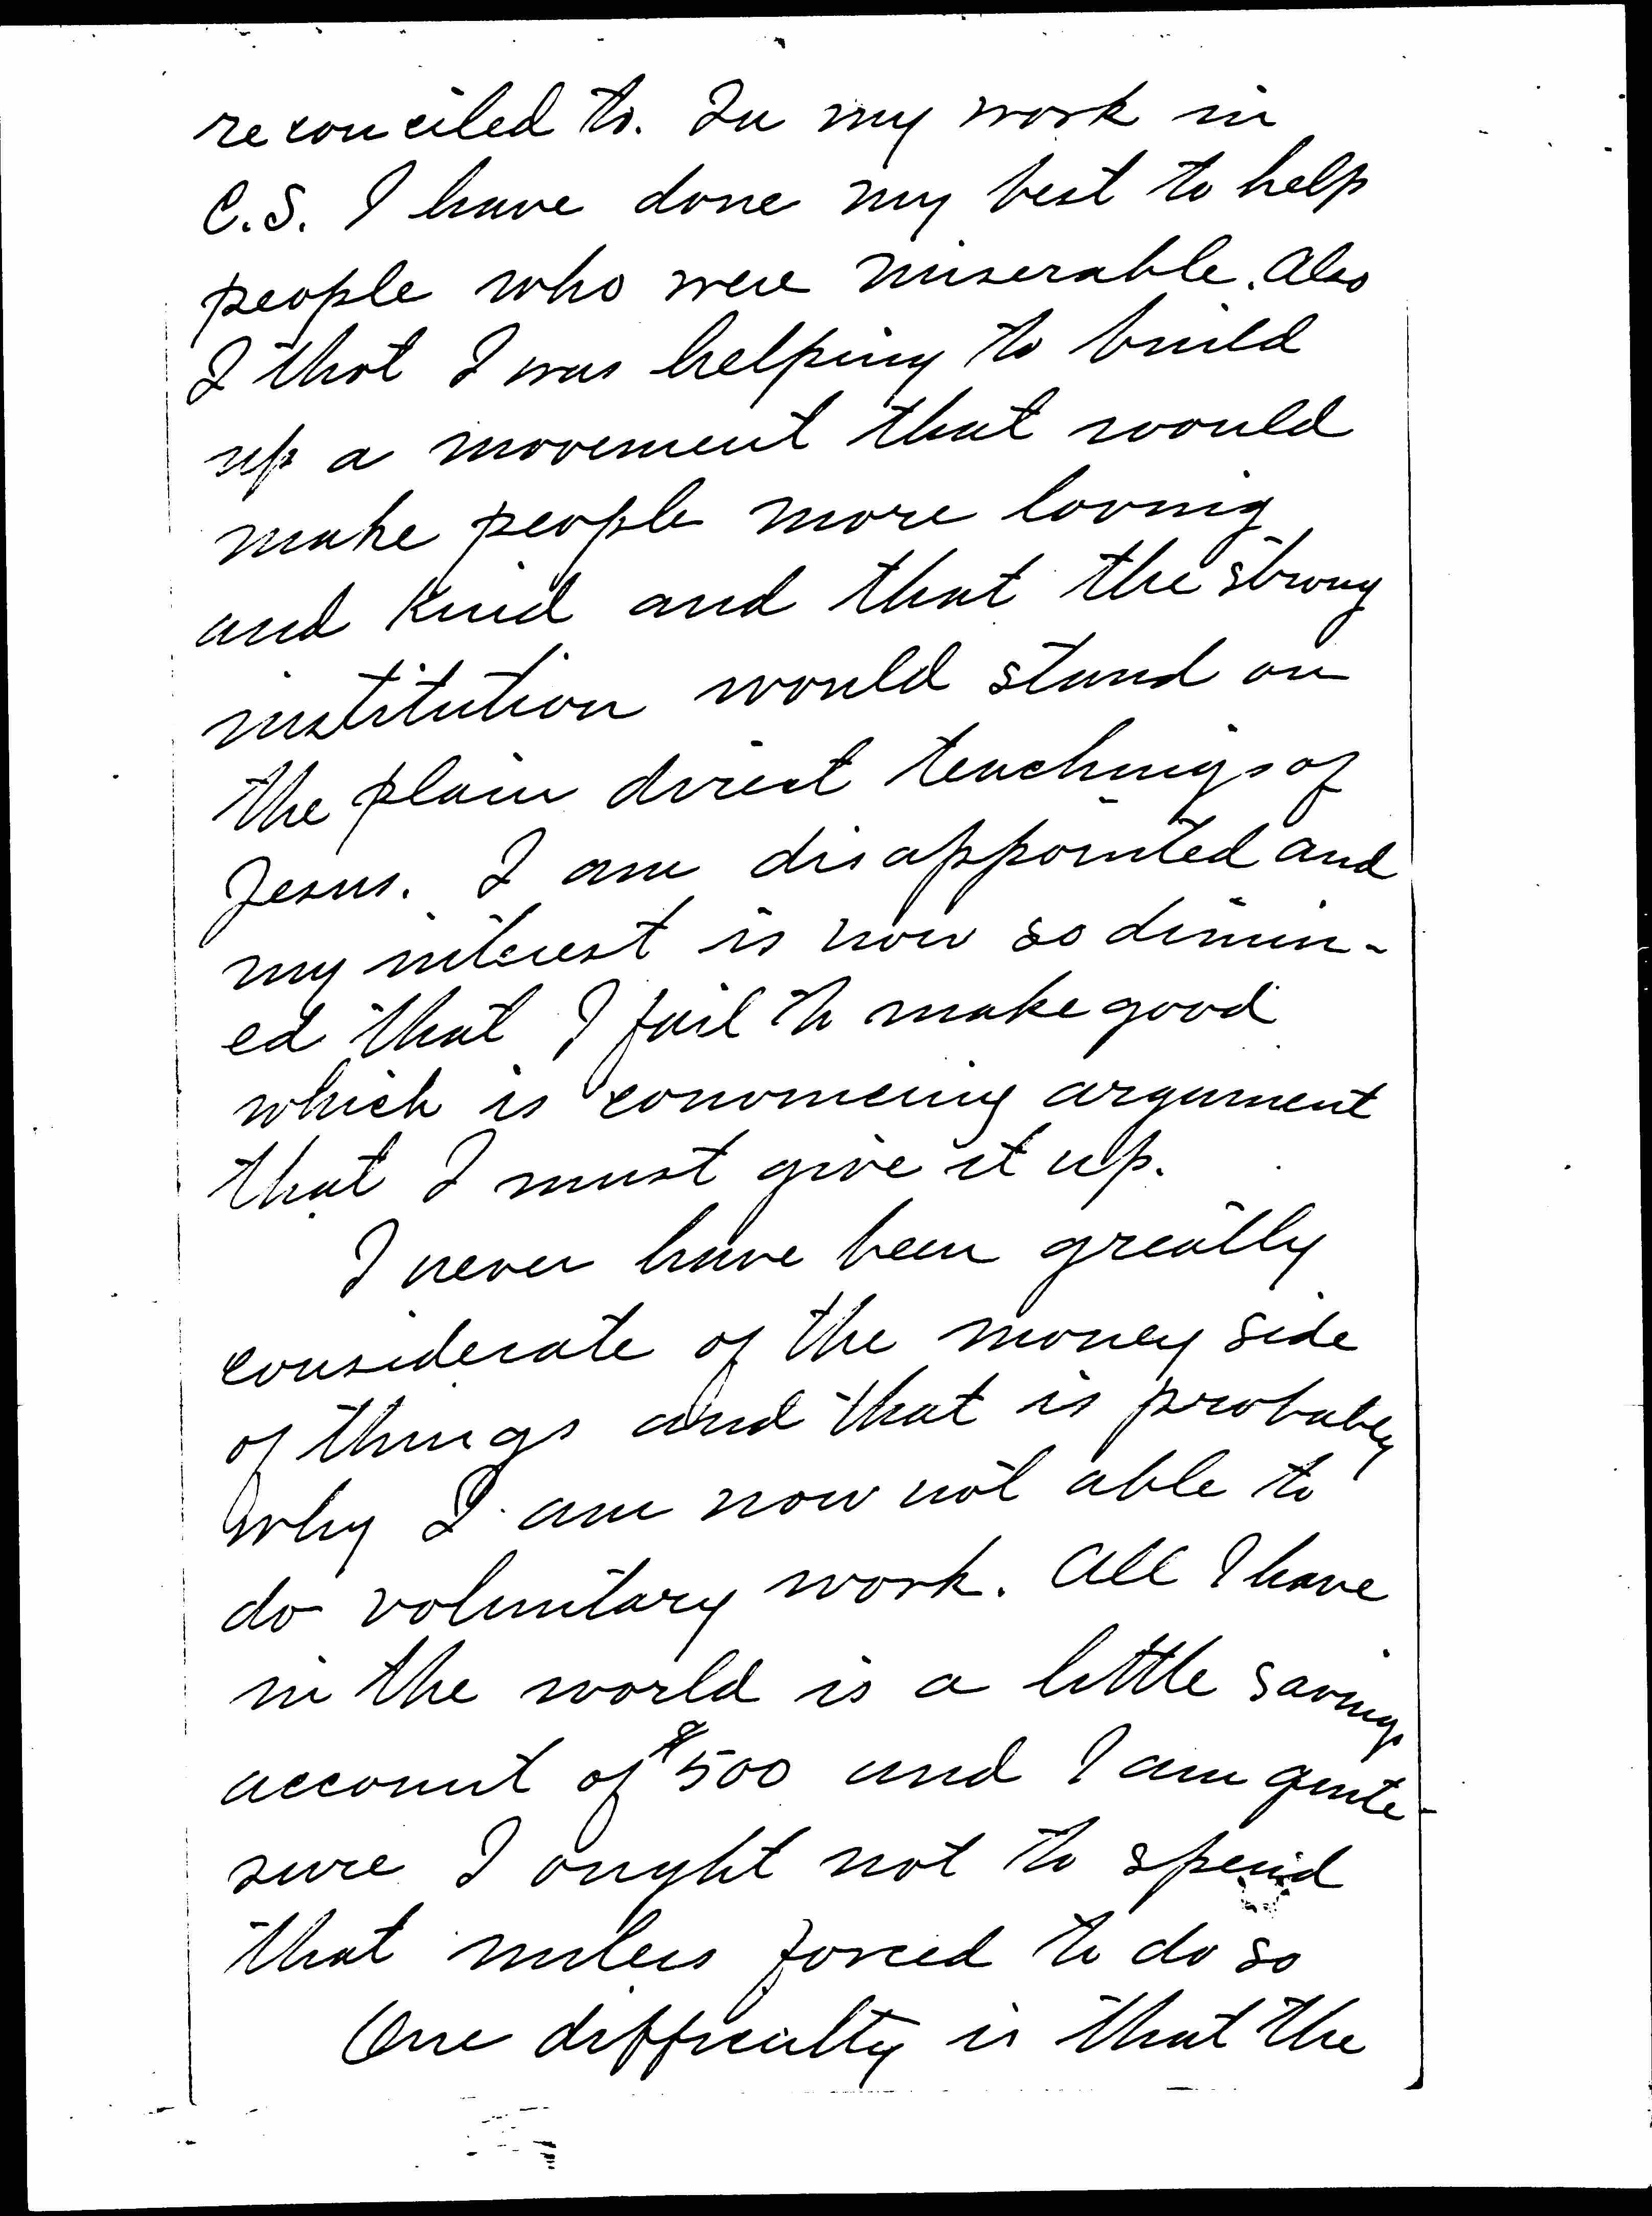 reconciled to. In my work in
C.S. I have done my best to help
people who were miserable. Also
I thot I was helping to build
up a movement that would
make people more loving
and kind and that the strong
institution would stand on
the plain direct teachings of
Jesus. I am disappointed and
my interest is now so dimin-
ed that I fail to make good
which is convincing argument
that I must give it up.
I never have been greatly
considerate of the money side
of things and that is probably
why I am now not able to
do voluntary work. All I have
in the world is a little savings
account of $500 and I am quite
sure I ought not to spend
that unless forced to do so
One difficulty is that the